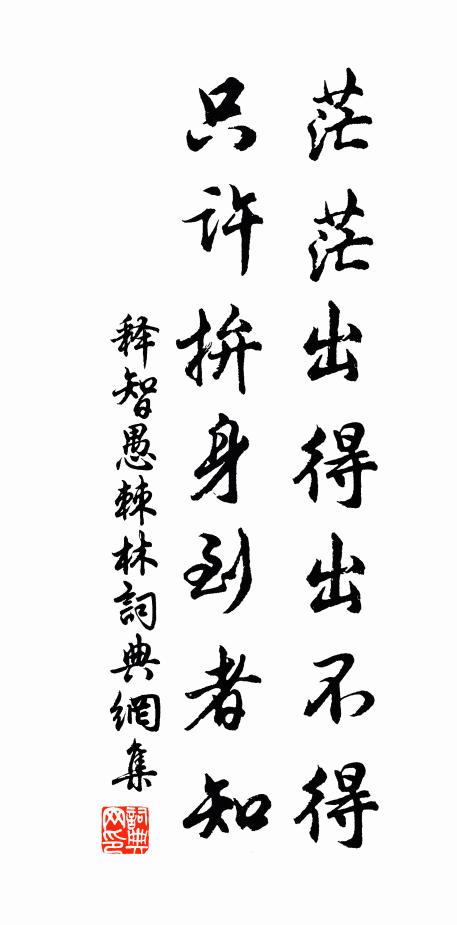 茫茫出得出不得
只許拚身到者知
释智愚棘林詞典網集
詞典网印